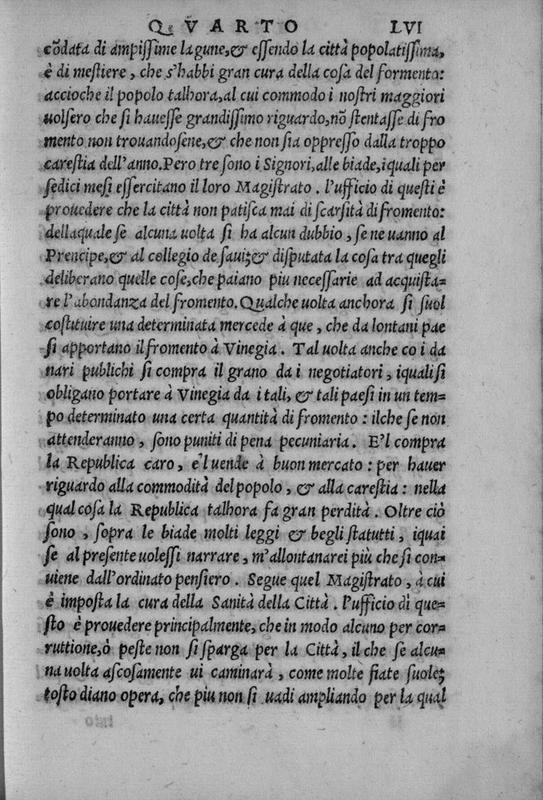 QVARTO LVI
cõdata di ampissime lagune,& essendo la città popolatissima,
è di mestiere, che s'habbi gran cura della cosa del formento:
accioche il popolo talhora,al cui commodo i nostri maggiori
uolsero che si hauesse grandissimo riguardo,nõ stentasse di fro
mento non trouandosene,& che non sia oppresso dalla troppo
carestia dell'anno.Pero tre sono i Signori,alle biade,iquali per
sedici mesi essercitano il loro Magistrato. l'ufficio di questi è
prouedere che la città non patisca mai di scarsità di fromento:
dellaquale se alcuna uolta si ha alcun dubbio, se ne uanno al
Prencipe,& al collegio de saui;& disputata la cosa tra quegli
deliberano quelle cose,che paiano piu necessarie ad acquista-
re l'abondanza del fromento.Qualche uolta anchora si suol
costituire una determinata mercede à que, che da lontani pae
si apportano il fromento à Vinegia. Tal uolta anche co i da
nari publichi si compra il grano da i negotiatori, iquali si
obligano portare à Vinegia da i tali, & tali paesi in un tem-
po determinato una certa quantità di fromento: ilche se non
attenderanno, sono puniti di pena pecuniaria. E'l compra
la Republica caro, e'l uende à buon mercato: per hauer
riguardo alla commodità del popolo, & alla carestia: nella
qual cosa la Republica talhora fa gran perdità. Oltre ciò
sono, sopra le biade molti leggi & begli statutti, iquai
se al presente uolessi narrare, m'allontanarei più che si con-
uiene dall'ordinato pensiero. Segue quel Magistrato, à cui
è imposta la cura della Sanità della Città. l'ufficio di que-
sto è prouedere principalmente, che in modo alcuno per cor-
ruttione,ò peste non si sparga per la Città, il che se alcu-
na uolta ascosamente ui caminarà, come molte fiate suole;
tosto diano opera, che piu non si uadi ampliando per la qual